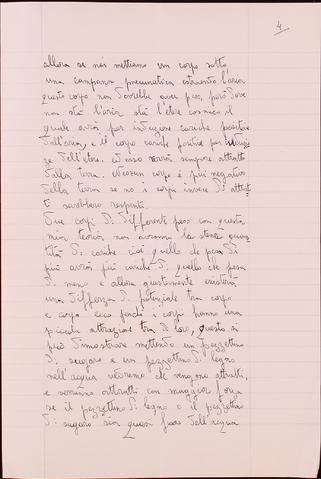 4
allora se noi mettiamo un corpo sotto
una campana pneumatica estraendo l'aria
questo corpo non dovrebbe aver peso, però dove
non sta l'aria sta l'etere cosmico il
quale avrà per induzione cariche positive
dall'aria, e il corpo cariche positive per
dell'etere. adesso verrà sempre attratto
dalla terra. Nessun corpo è più negativo
della terra se no i corpi invece di
ti sarebbero respinti.
Due corpi di differente peso con questa
mia teoria non avranno la stessa quan
tità di cariche cioè quello che pesa di
più avrà più cariche di quello che pesa
di meno e allora giustamente esisterà
una differenza di potenziale tra corpo
e corpo ecco perché i corpi hanno una
piccola attrazione tra di loro, questo si
può dimostrare mettendo un pezzettino
di sughero e un pezzettino di legno
nell'acqua vedremo che vengono attratti,
e verranno attratti con maggior forza
se il pezzettino di legno o il pezzettino
di sughero sia quasi fuori dell'acqua